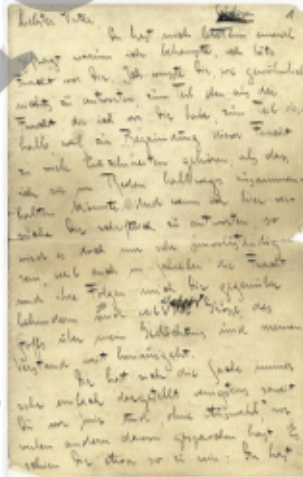 Liebster Vater,
Du hast mich letzthin einmal
gefragt, warum ich behaupte, ich hätte
Furcht vor Dir. Ich wusste Dir, wie gewöhnlich,
nichts zu antworten, zum Teil eben aus der
Furcht die ich vor Dir habe, zum Teil des-
halb, weil zur Begründung dieser Furcht
zu viele Einzelheiten gehören, als dass
ich sie im Reden halbwegs zusammen-
halten könnte. Und wenn ich hier ver-
suche Dir schriftlich zu antworten, so
wird es doch nur sehr unvollständig
sein, weil auch im Schreiben die Furcht
und ihre Folgen mich Dir gegenüber
behindern und weil Grösse des
Stoffs über mein Gedächtnis und meinen
Verstand weit hinausgeht.
Dir hat sich die Sache immer
sehr einfach dargestellt, wenigstens soweit
Du vor mir und, ohne Auswahl, vor
vielen andern davon gesprochen hast. Es
schien Dir etwa so zu sein: Du hast